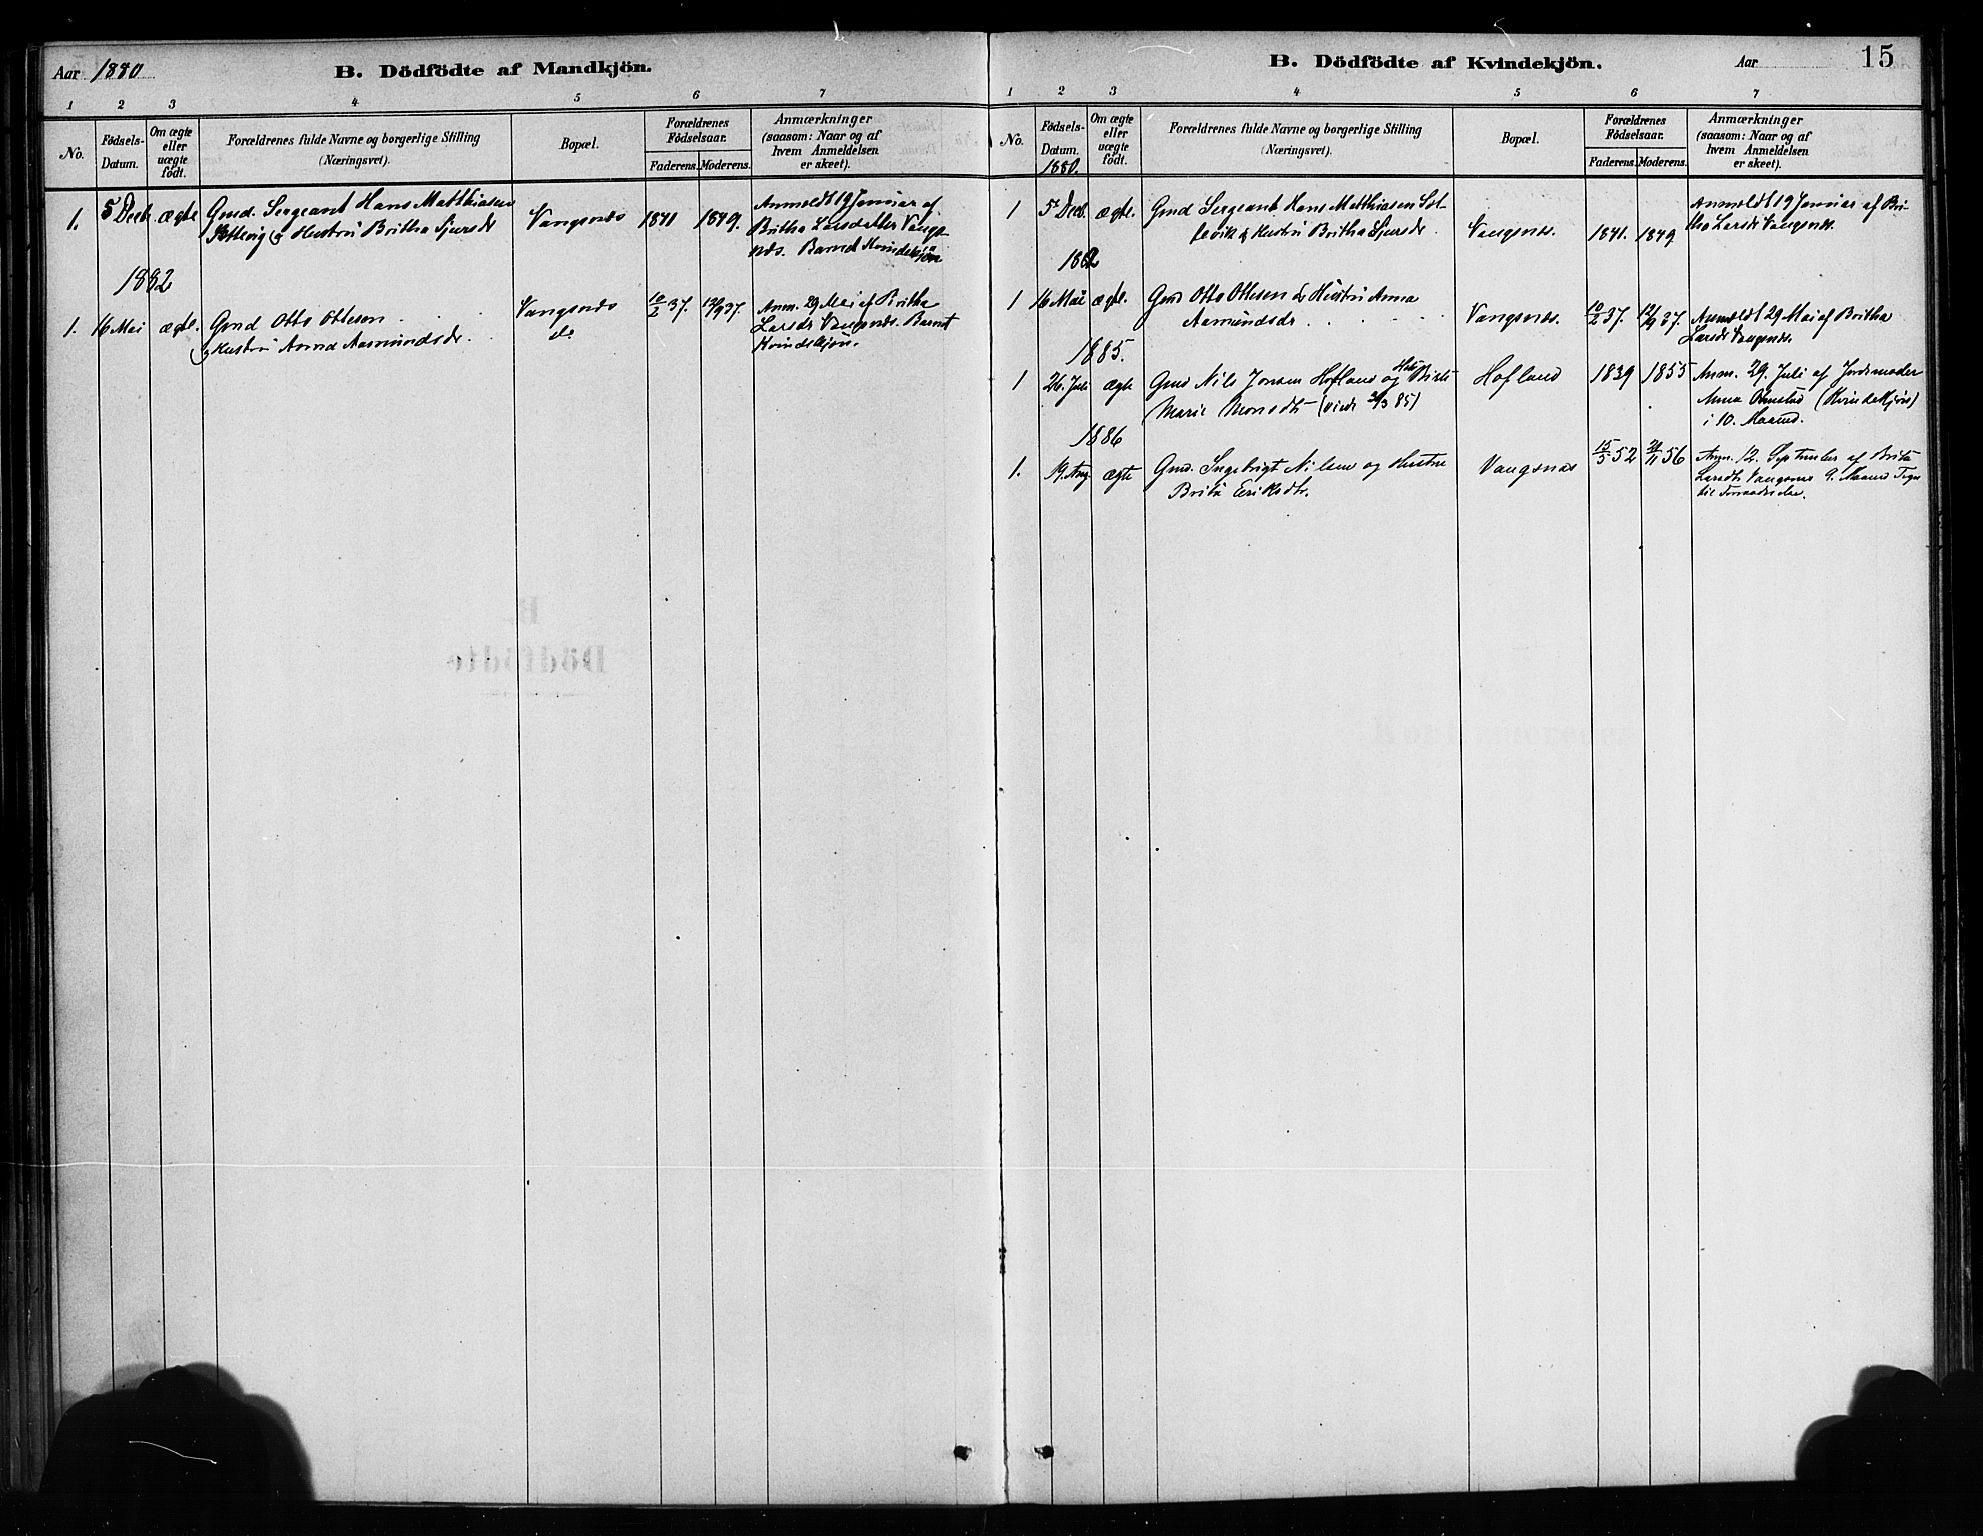 Aar 1880
B. Dödfödte af Mandkjön.
1 2 3 4 5 6 7
No.
Födsels-Datum.
Om ægte eller uægte födt.
Forældrenes fulde Navne og borgerlige Stilling (Næringsvei).
Bopæl.
Forældrenes Födselsaar.
Faderens. Moderens.
Anmærkninger (saasom: Naar og af hvem Anmeldelsen er skeet).
1. 5 Decb. ægte Gmd. Sergeant Hans Matthiasen
og Hustru Britha Sjursdr
Vangsnæs 1841 1849.
Anmeldt 19 Januar af
Britha Larsdatter Vangs-
næs. Barnet Kvindekjøn
1882
1. 16 Mai ægte. Gmd Otto Ottesen
og Hustru Anna Aasmundsdr.
Vangsnæs
10/2 37. 12/9 37.
Anm. 29 Mai af Britha
Larsdr Vangsnæs. Barnet
Kvindekjøn.
B. Dödfödte af Kvindekjön.
Aar
15
1 2 3 4 5 6 7
No.
Födsels-Datum.
1880.
Om ægte eller uægte födt.
Forældrenes fulde Navne og borgerlige Stilling (Næringsvei).
Bopæl.
Forældrenes Födselsaar.
Faderens. Moderens.
Anmærkninger (saasom: Naar og af hvem Anmeldelsen er skeet).
1 5 Decb. ægte. Gmd Sergeant Hans Matthiasen
& Hustru Britha Sjursdr.
Vangsnæs. 1841. 1849
Anmeldt 19 Januar af Bri-
tha Larsdr Vangsnæs.
1882
1 16 Mai ægte. Gmd Otto Ottesen & Hustru Anna
Aamundsdr
Vangsnæs. 10/2 37. 12/9 37.
Anmeldt 29 Mai af Britha
Larsdr Vangsnæs.
1885.
1 26. Juli ægte Gmd Nils Jonsen Hofland og
Marie Monsdtr (viede 85)
Hofland 1839 1855
Anm. 29. Juli af Jordmoder
Anna (Kvindekjøn)
i 10. Maaned.
1886
1. 19. Aug ægte Gmd. Ingebrigt Nilsen og Hustru
Brita Eriksdtr.
Vangsnæs 15/5 52 56
Anm. 12. September af Brita
Larsdtr Vangsnæs 9. Maaned Tegn
til Forraadnelse.